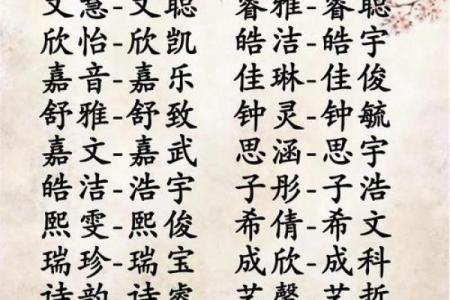 文慧-文聪 睿雅-睿聪
欣怡-欣凯 皓洁-皓宇
嘉音-嘉乐 佳琳-佳俊
舒雅-舒致 钟灵-钟毓
嘉文-嘉武 思涵-思宇
皓洁-浩宇 子彤-子浩
熙雯-熙俊 希倩-希文
瑞珍-瑞宝 成欣-成科
诗韵-诗睿 艺馨-艺哲